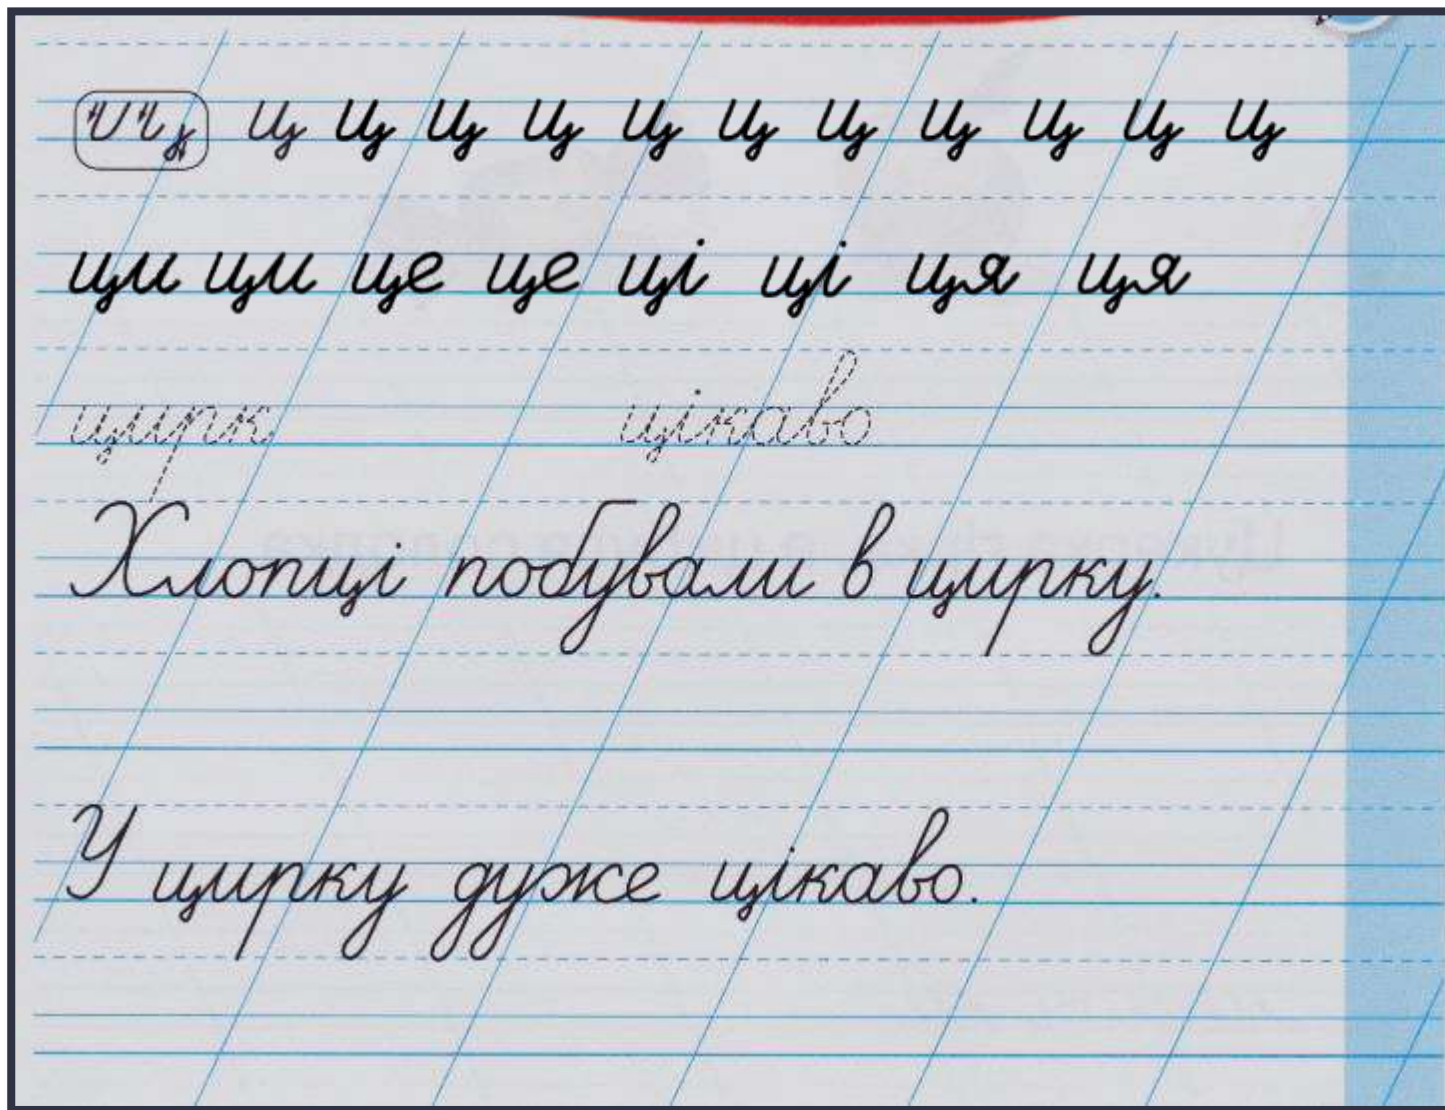 ц ц ц ц ц ц ц ц ц ц ц
ци ци це це ці ці ця ця
цирк цікаво
Хлопці побували в цирку.
У цирку дуже цікаво.